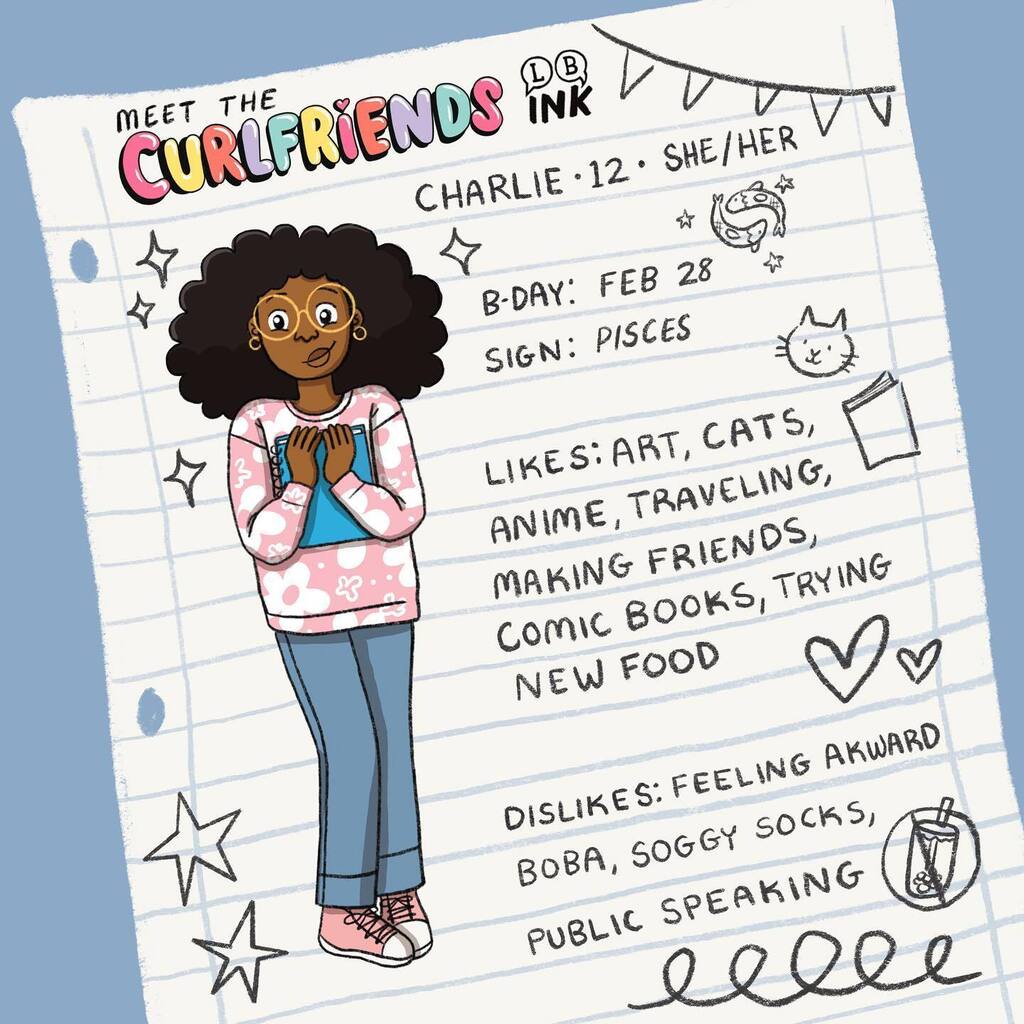 MEET THE
CURLFRIENDS
LB
INK
CHARLIE · 12 · SHE/HER
B-DAY: FEB 28
SIGN: PISCES
LIKES: ART, CATS,
ANIME, TRAVELING,
MAKING FRIENDS,
COMIC BOOKS, TRYING
NEW FOOD
DISLIKES: FEELING AKWARD
BOBA, SOGGY SOCKS,
PUBLIC SPEAKING